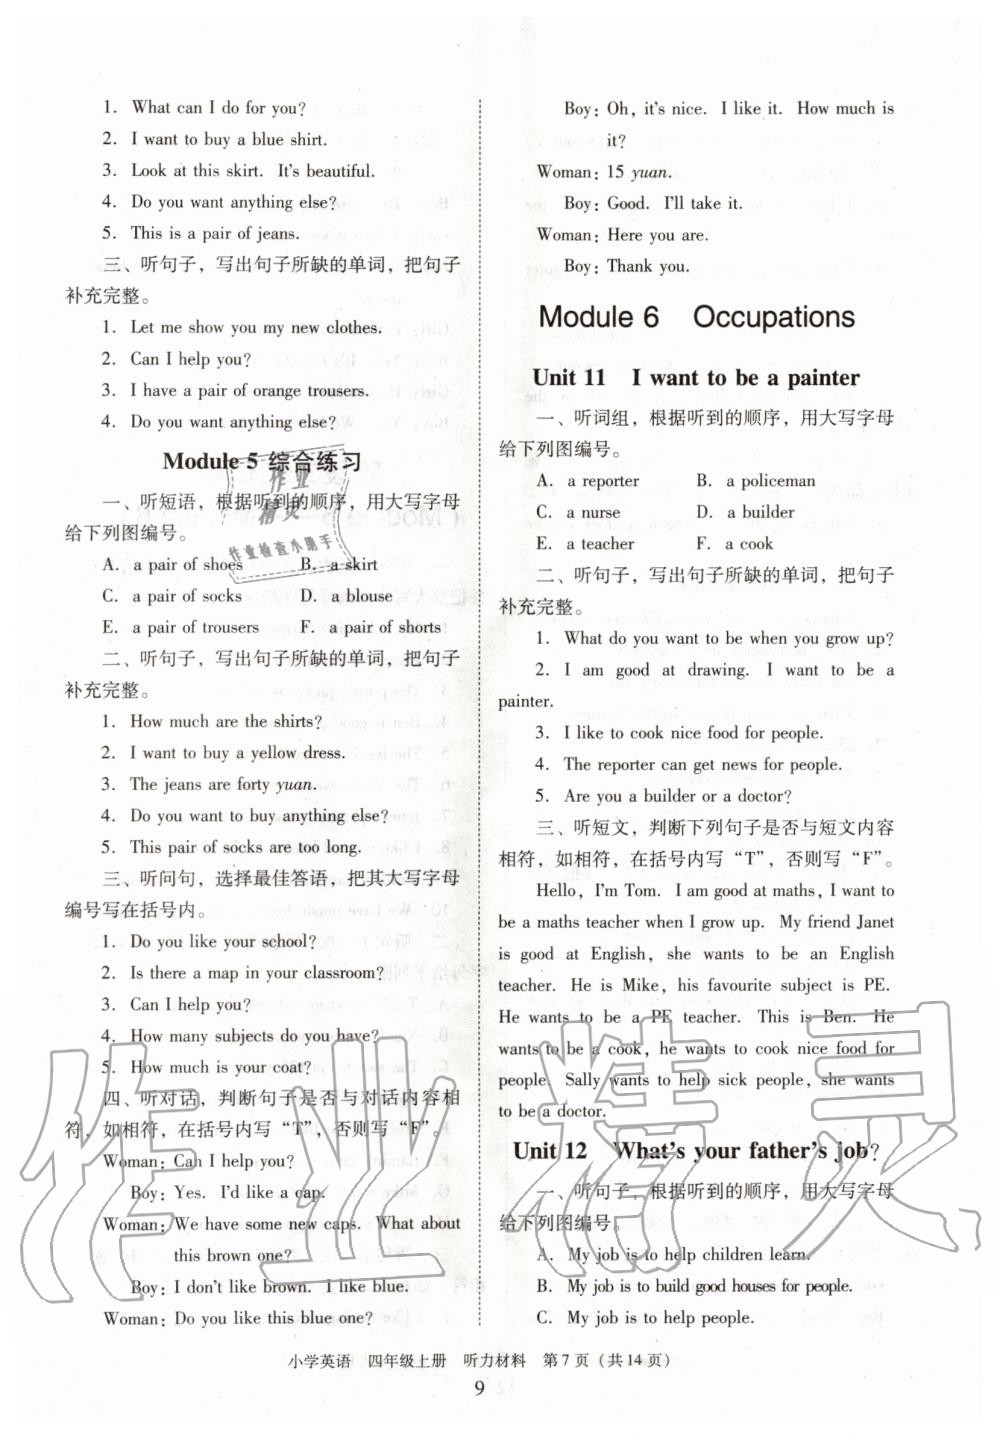 1. What can I do for you?
2. I want to buy a blue shirt.
3. Look at this skirt. It's beautiful.
4. Do you want anything else?
5. This is a pair of jeans.
三、听句子，写出句子所缺的单词，把句子
补充完整。
1. Let me show you my new clothes.
2. Can I help you?
3. I have a pair of orange trousers.
4. Do you want anything else?
Module 5 综合练习
一、听短语，根据听到的顺序，用大写字母
给下列图编号。
A. a pair of shoes B. a skirt
C. a pair of socks D. a blouse
E. a pair of trousers F. a pair of shorts
二、听句子，写出句子所缺的单词，把句子
补充完整。
1. How much are the shirts?
2. I want to buy a yellow dress.
3. The jeans are forty yuan.
4. Do you want to buy anything else?
5. This pair of socks are too long.
三、听问句，选择最佳答语，把其大写字母
编号写在括号内。
1. Do you like your school?
2. Is there a map in your classroom?
3. Can I help you?
4. How many subjects do you have?
5. How much is your coat?
四、听对话，判断句子是否与对话内容相
符，如相符，在括号内写“T”，否则写“F”。
Woman: Can I help you?
Boy: Yes. I'd like a cap.
Woman: We have some new caps. What about
this brown one?
Boy: I don't like brown. I like blue.
Woman: Do you like this blue one?
Boy: Oh, it's nice. I like it. How much is
it?
Woman: 15 yuan.
Boy: Good. I'll take it.
Woman: Here you are.
Boy: Thank you.
Module 6 Occupations
Unit 11 I want to be a painter
一、听词组，根据听到的顺序，用大写字母
给下列图编号。
A. a reporter B. a policeman
C. a nurse D. a builder
E. a teacher F. a cook
二、听句子，写出句子所缺的单词，把句子
补充完整。
1. What do you want to be when you grow up?
2. I am good at drawing. I want to be a
painter.
3. I like to cook nice food for people.
4. The reporter can get news for people.
5. Are you a builder or a doctor?
三、听短文，判断下列句子是否与短文内容
相符，如相符，在括号内写“T”，否则写“F”。
Hello, I'm Tom. I am good at maths, I want to
be a maths teacher when I grow up. My friend Janet
is good at English, she wants to be an English
teacher. He is Mike, his favourite subject is PE.
He wants to be a PE teacher. This is Ben. He
wants to be a cook, he wants to cook nice food for
people. Sally wants to help sick people, she wants
to be a doctor.
Unit 12 What's your father's job?
一、听句子，根据听到的顺序，用大写字母
给下列图编号。
A. My job is to help children learn.
B. My job is to build good houses for people.
C. My job is to help people.
小学英语 四年级上册 听力材料 第7页（共14页）
9
作业
精灵
作业检查小助手
作业精灵